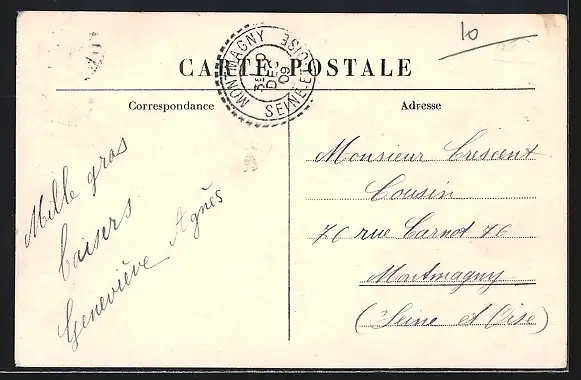 10
CARTE POSTALE
MONTMAGNY SEINE-ET-OISE
DEC
09
Correspondance
Adresse
Mille gros
baisers
Geneviève Agnès
Monsieur Crescent
Cousin
76 rue Carnot 76
Montmagny
(Seine et Oise)